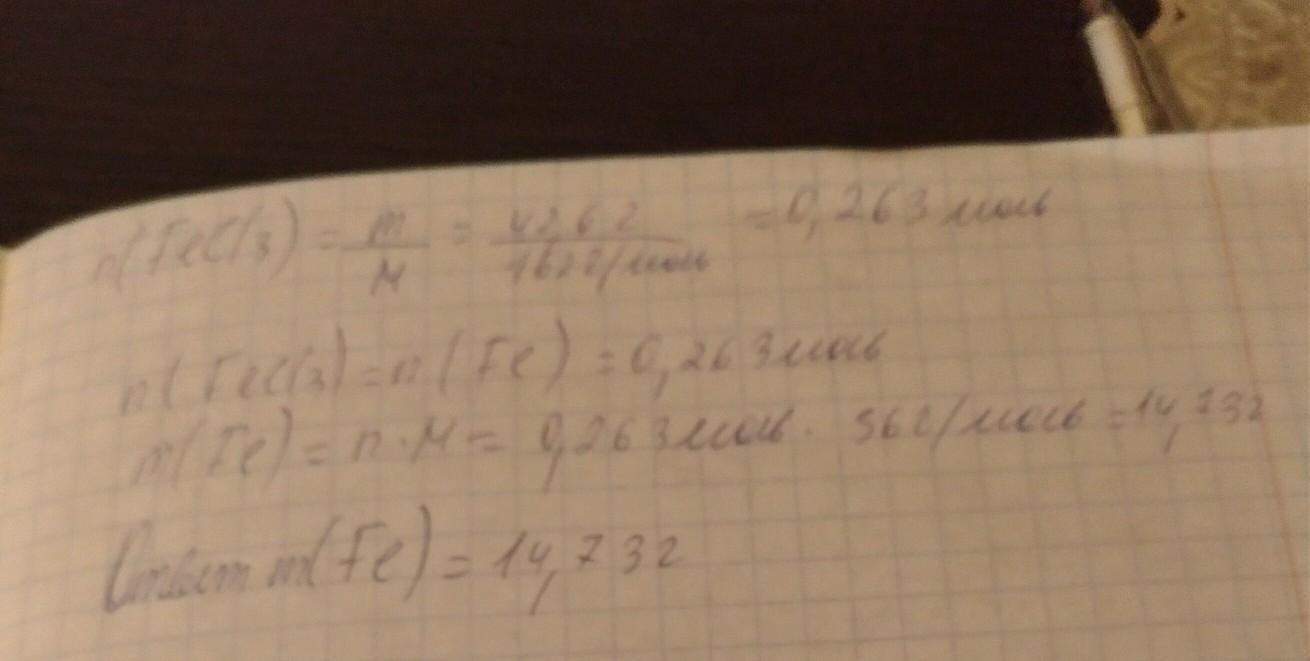 n(FeCl3) = m/M = 42,6г/162г/моль = 0,263 моль
n(FeCl3) = n(Fe) = 0,263 моль
m(Fe) = n·M = 0,263 моль · 56г/моль = 14,73г
Ответ m(Fe) = 14,73г